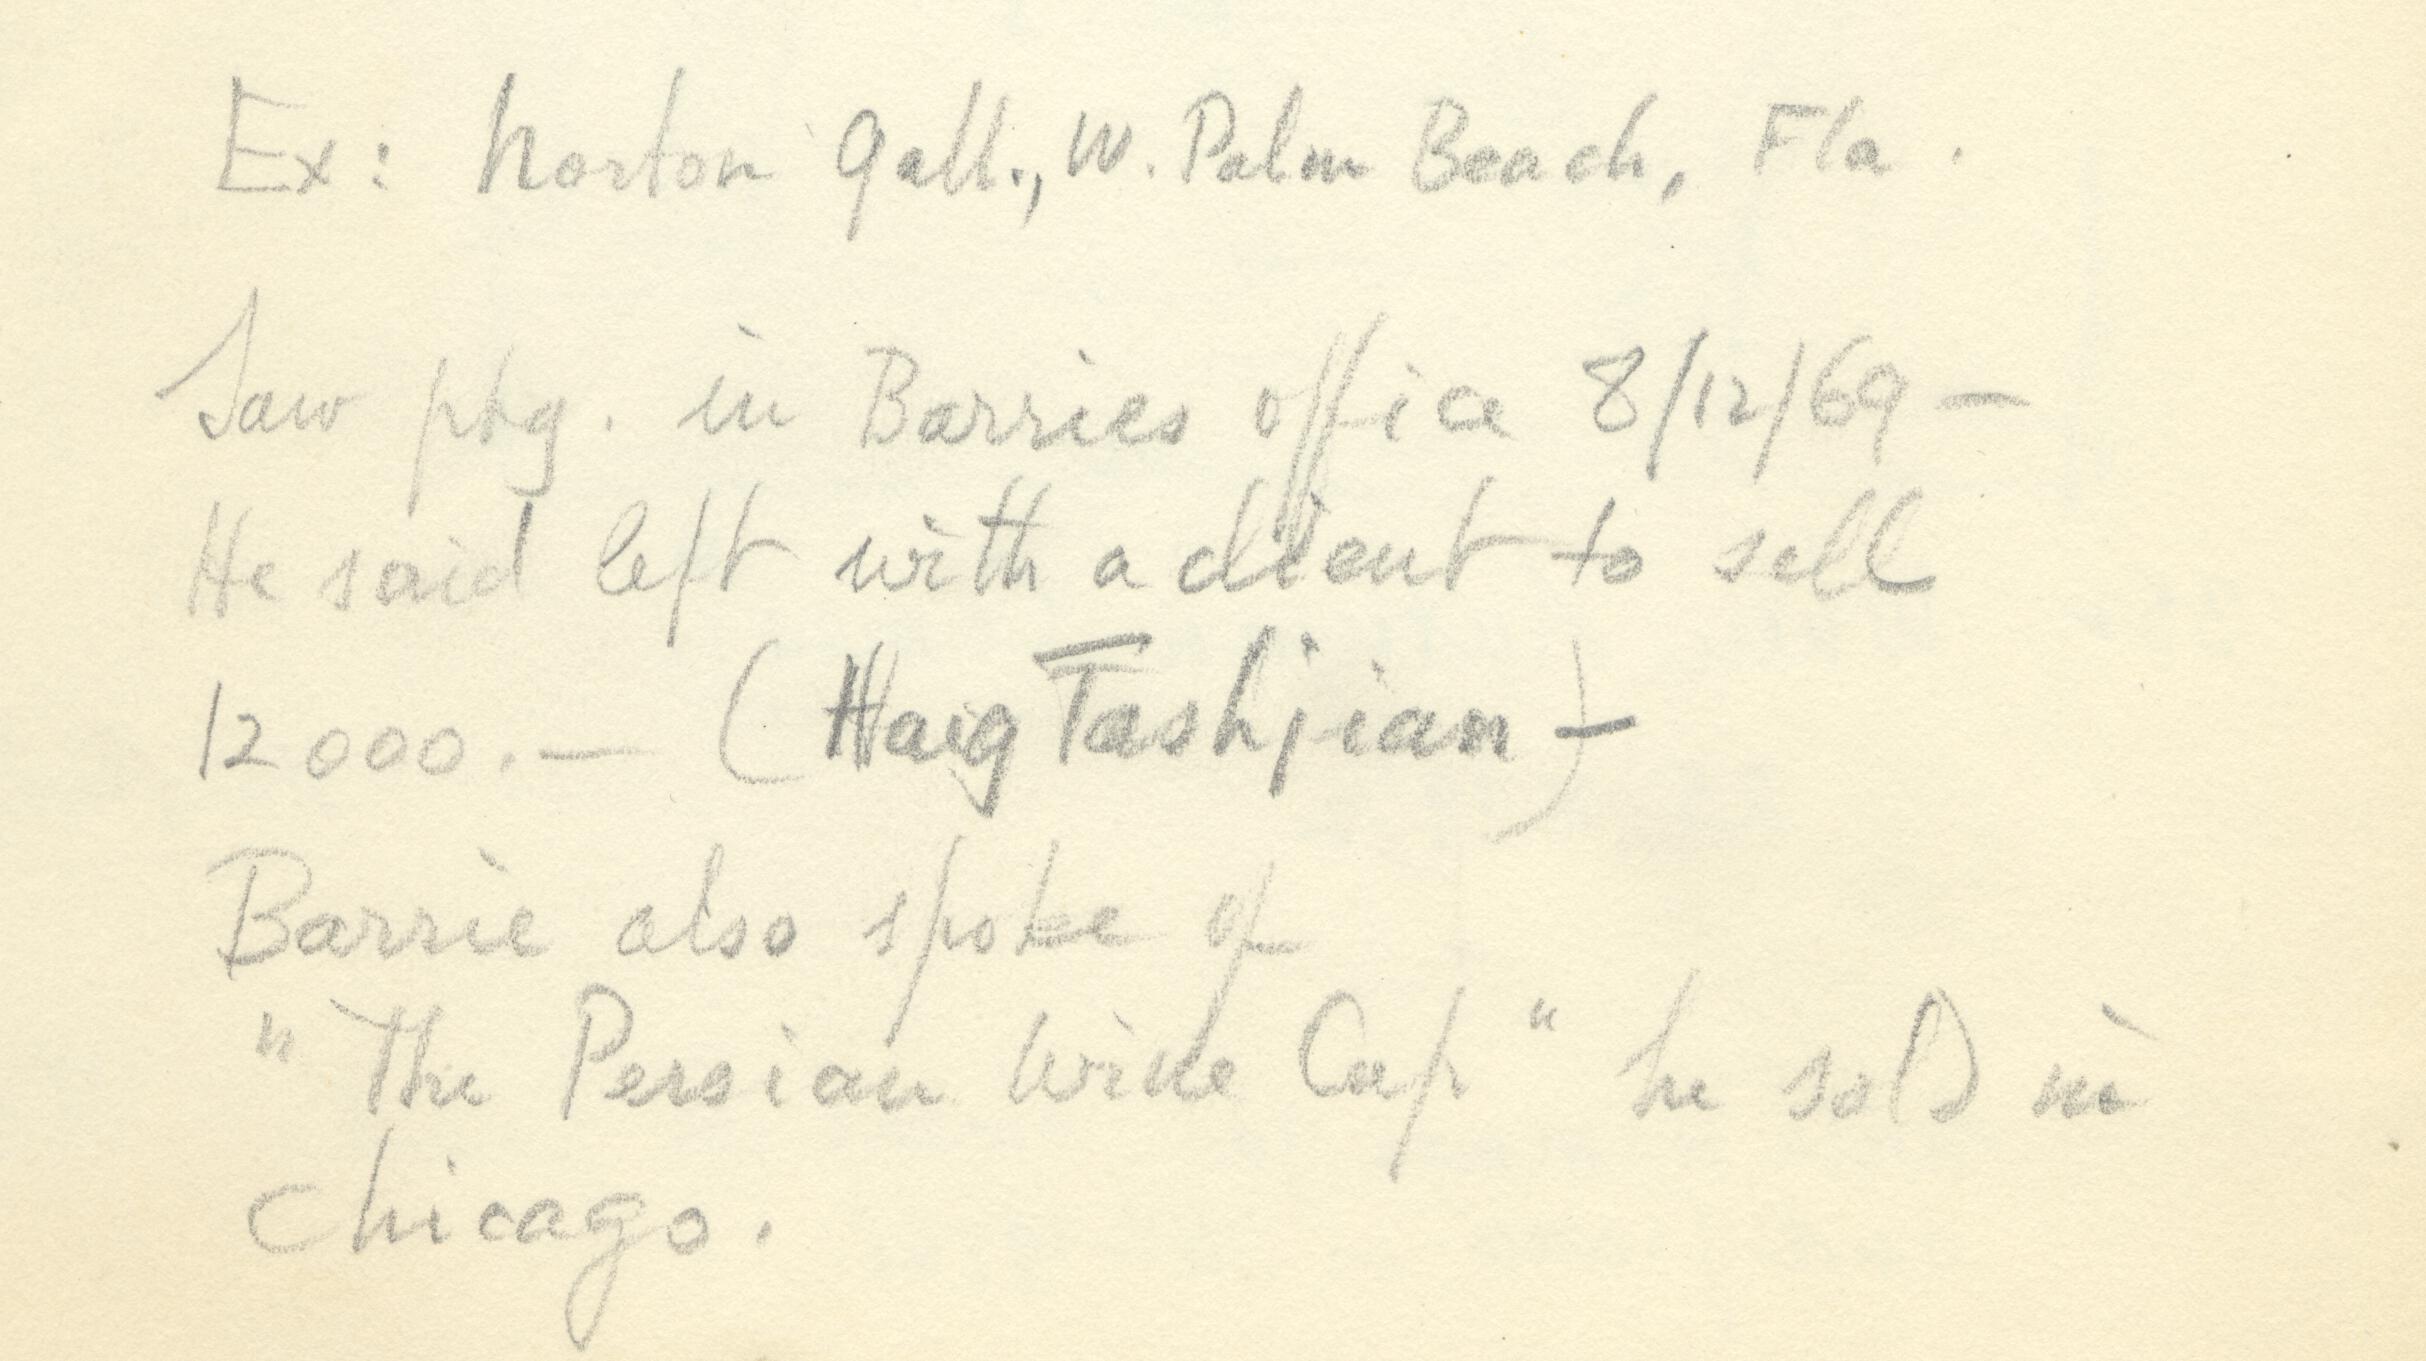 Ex: Norton Gall., W. Palm Beach, Fla.
Saw ptg. in Barries office 8/12/69 –
He said left with a client to sell
12000.— (Haig Tashjian –)
Barrie also spoke of
"The Persian Wine Cup" he sold in
Chicago.